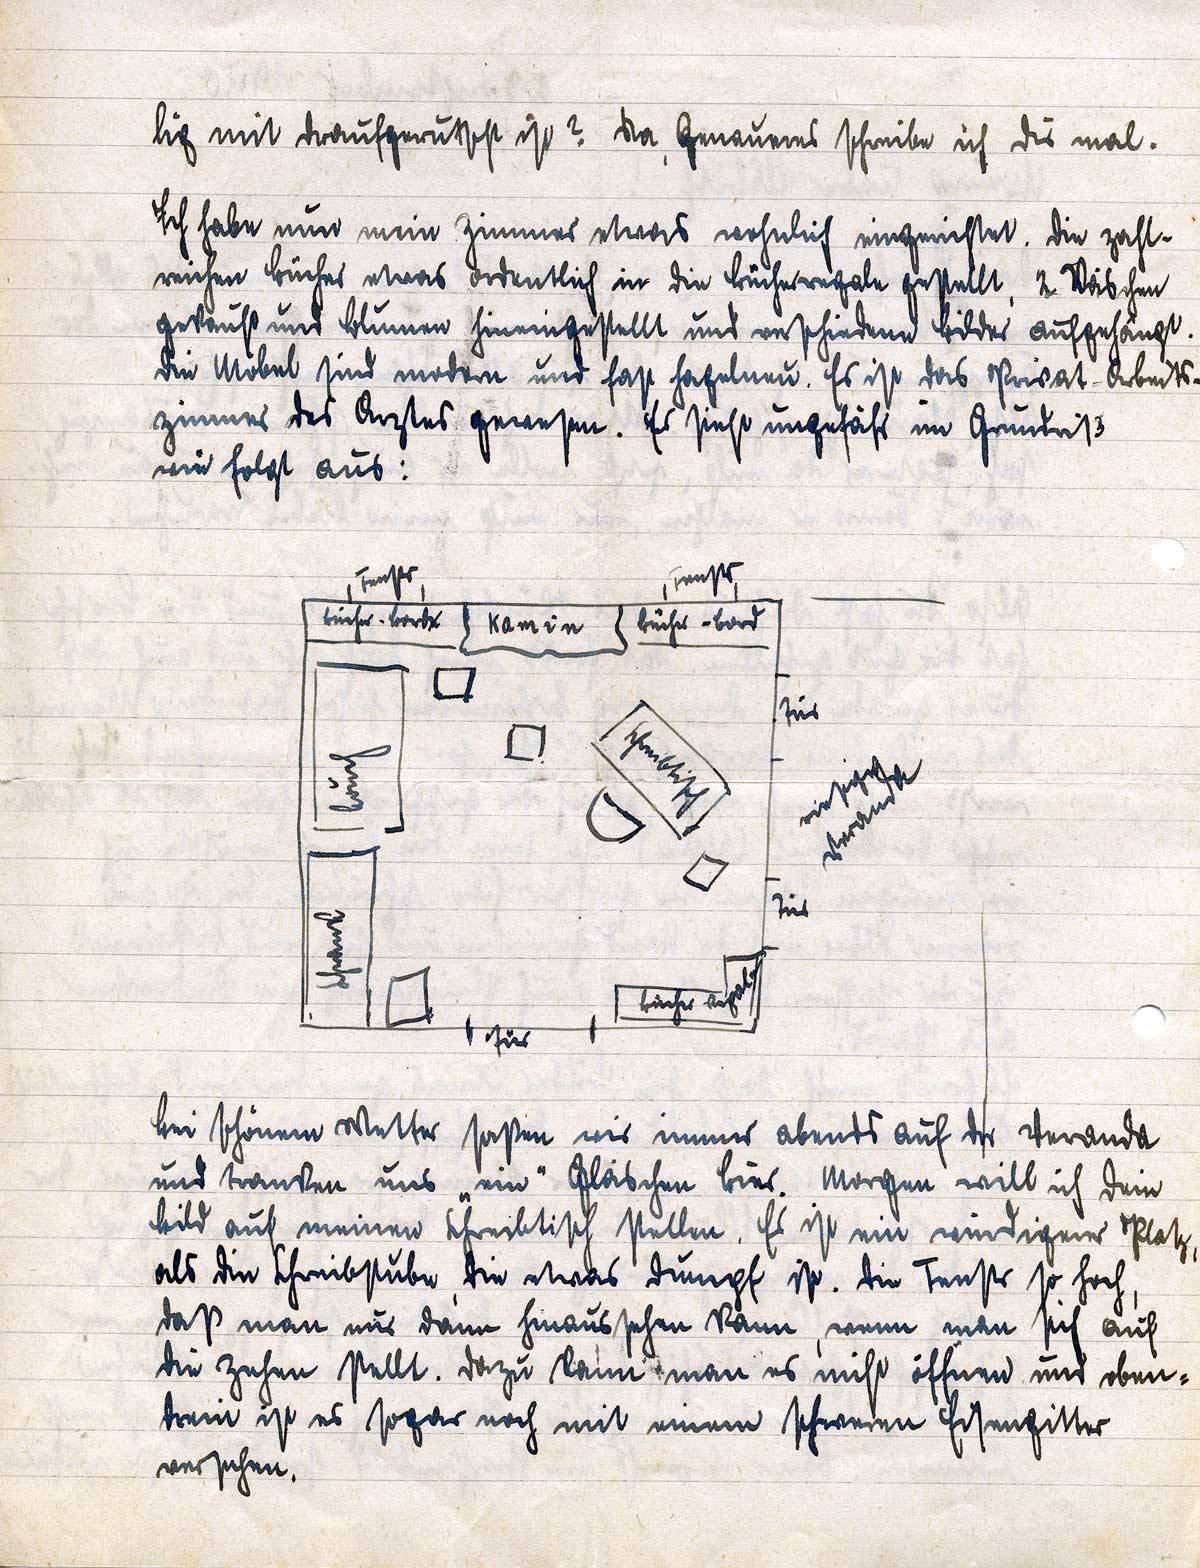 lig mit draufgerutscht ist? Na, Genaueres schreibe ich Dir mal.
Ich habe nun mein Zimmer etwas wohnlich eingerichtet. Die zahl-
reichen Bücher etwas ordentlich in die Bücherregale gestellt, 2 Väschen
gekauft und Blumen hineingestellt und verschiedene Bilder aufgehängt.
Die Möbel sind modern und fast hagelneu. Es ist das Privat-Arbeits-
zimmer des Arztes gewesen. Es sieht ungefähr im Grundriß
wie folgt aus:
Fenster
Fenster
Bücher-Bord
Kamin
Bücher-Bord
Tür
Couch
Schreibtisch
riesige
Veranda
Tür
Schrank
Bücher Regal
Tür
Bei schönem Wetter saßen wir immer abends auf der Veranda
und tranken uns „ein“ Gläschen Bier. Morgen will ich Dein
Bild auf meinen Schreibtisch stellen. Es ist ein würdigerer Platz,
als die Schreibstube, die etwas dumpf ist. Die Fenster so hoch,
daß man nur dann hinaussehen kann, wenn man sich auf
die Zehen stellt. Dazu kann man es nicht öffnen und oben-
drein ist es sogar noch mit einem schweren Eisengitter
versehen.